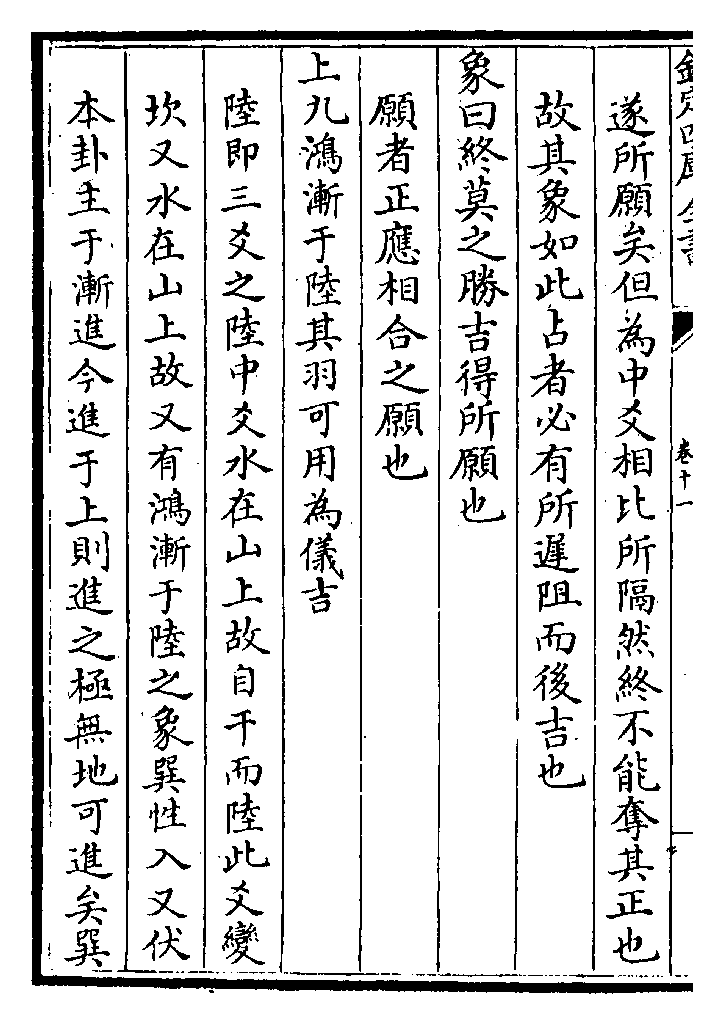 欽定四庫全書
卷十一
遂所願矣但為中爻相比所隔然終不能奪其正也
故其象如此占者必有所遲阻而後吉也
象曰終莫之勝吉得所願也
願者正應相合之願也
上九鴻漸于陸其羽可用為儀吉
陸即三爻之陸中爻水在山上故自干而陸此爻變
坎又水在山上故又有鴻漸于陸之象巽性入又伏
本卦主于漸進今進于上則進之極無地可進矣巽